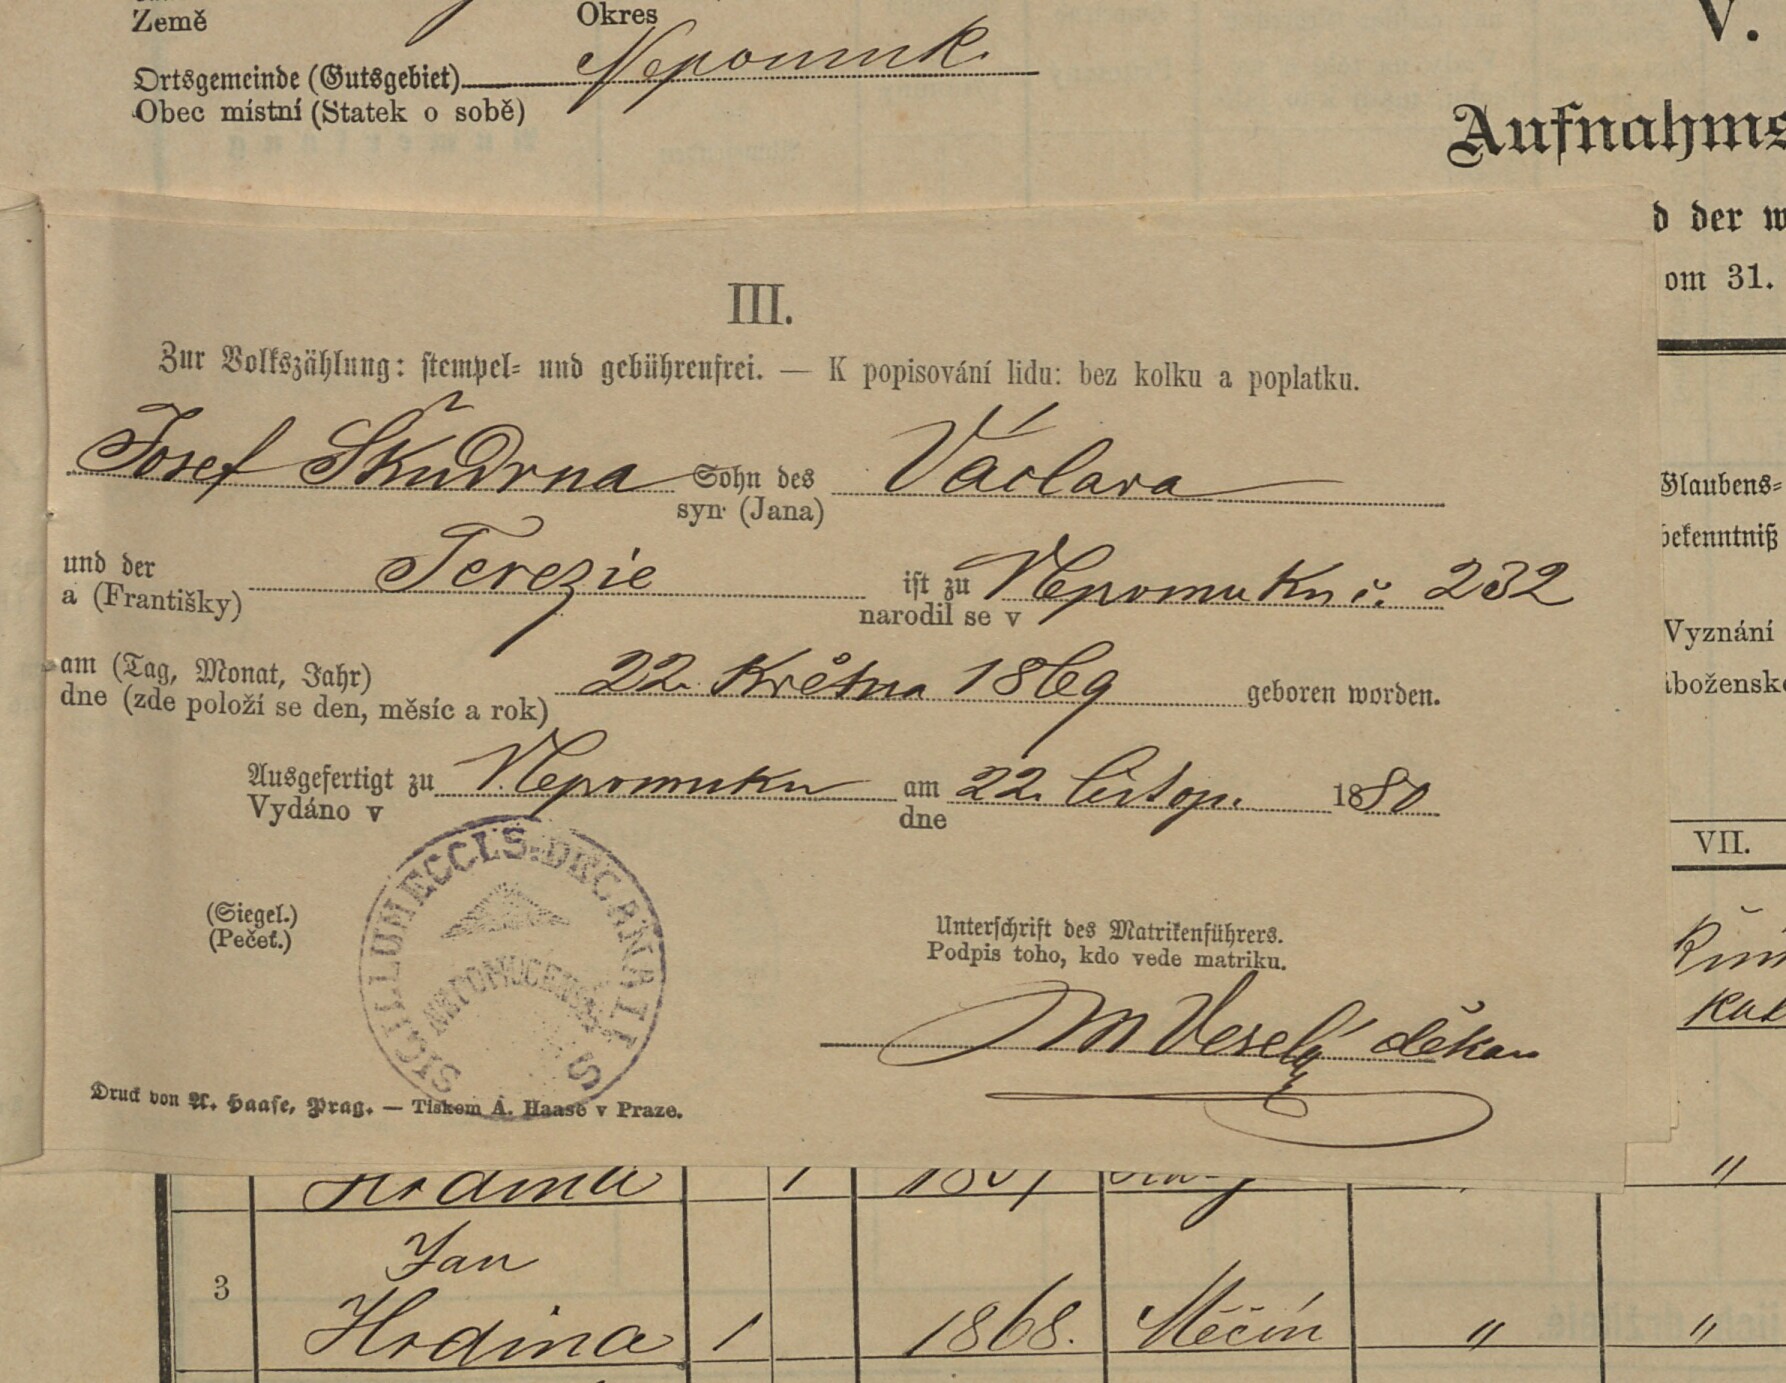 Země
Okres
Ortsgemeinde (Gutsgebiet) Nepomuk.
Obec místní (Statek o sobě)
V.
Aufnahms
d der w
om 31.
III.
Zur Volkszählung: stempel- und gebührenfrei. — K popisování lidu: bez kolku a poplatku.
Josef Škudrna Sohn des Václava
syn (Jana)
und der Terezie ist zu Nepomuku č. 232
a (Františky) narodil se v
am (Tag, Monat, Jahr) 22. Května 1869 geboren worden.
dne (zde položí se den, měsíc a rok)
Ausgefertigt zu Nepomuku am 22. listop. 1880
Vydáno v dne
(Siegel.)
(Pečeť.)
SIGILLUM ECCLS. DECANALIS
NEPOMUCENSIS
Unterschrift des Matrikenführers.
Podpis toho, kdo vede matriku.
M Veselý děkan
Druck von A. Haase, Prag. — Tiskem A. Haase v Praze.
Glaubens-
bekenntniß
Vyznání
VII.
Hodina 1
3 Jan
Hodina 1 1868. Měčín " "